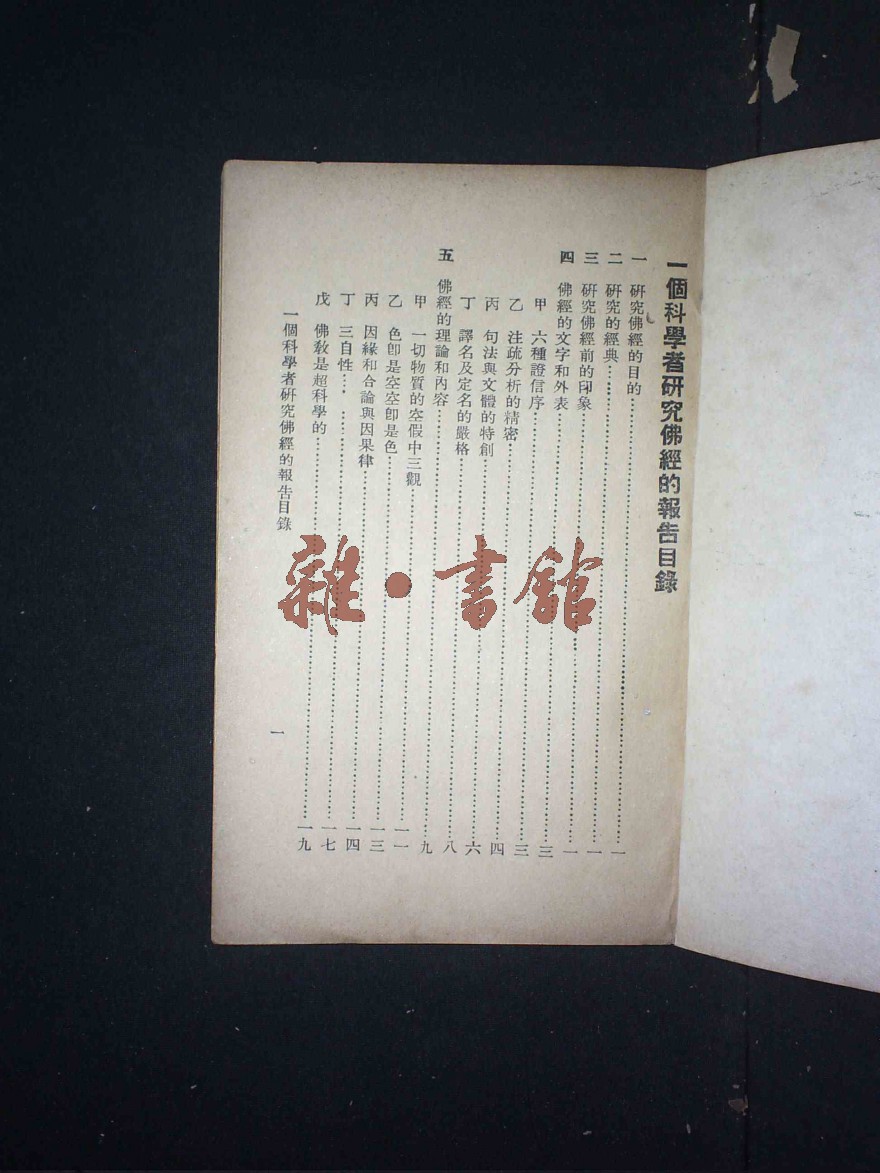 一個科學者研究佛經的報告目錄
一 研究佛經的目的……一
二 研究的經典……一
三 研究佛經前的印象……一
四 佛經的文字和外表……三
甲 六種證信序……三
乙 注疏分析的精密……四
丙 句法與文體的特創……六
丁 譯名及定名的嚴格……八
五 佛經的理論和內容……九
甲 一切物質的空假中三觀……一一
乙 色卽是空空卽是色……一三
丙 因緣和合論與因果律……一四
丁 三自性……一七
戊 佛敎是超科學的……一九
一個科學者研究佛經的報告目錄
一
雜·書館